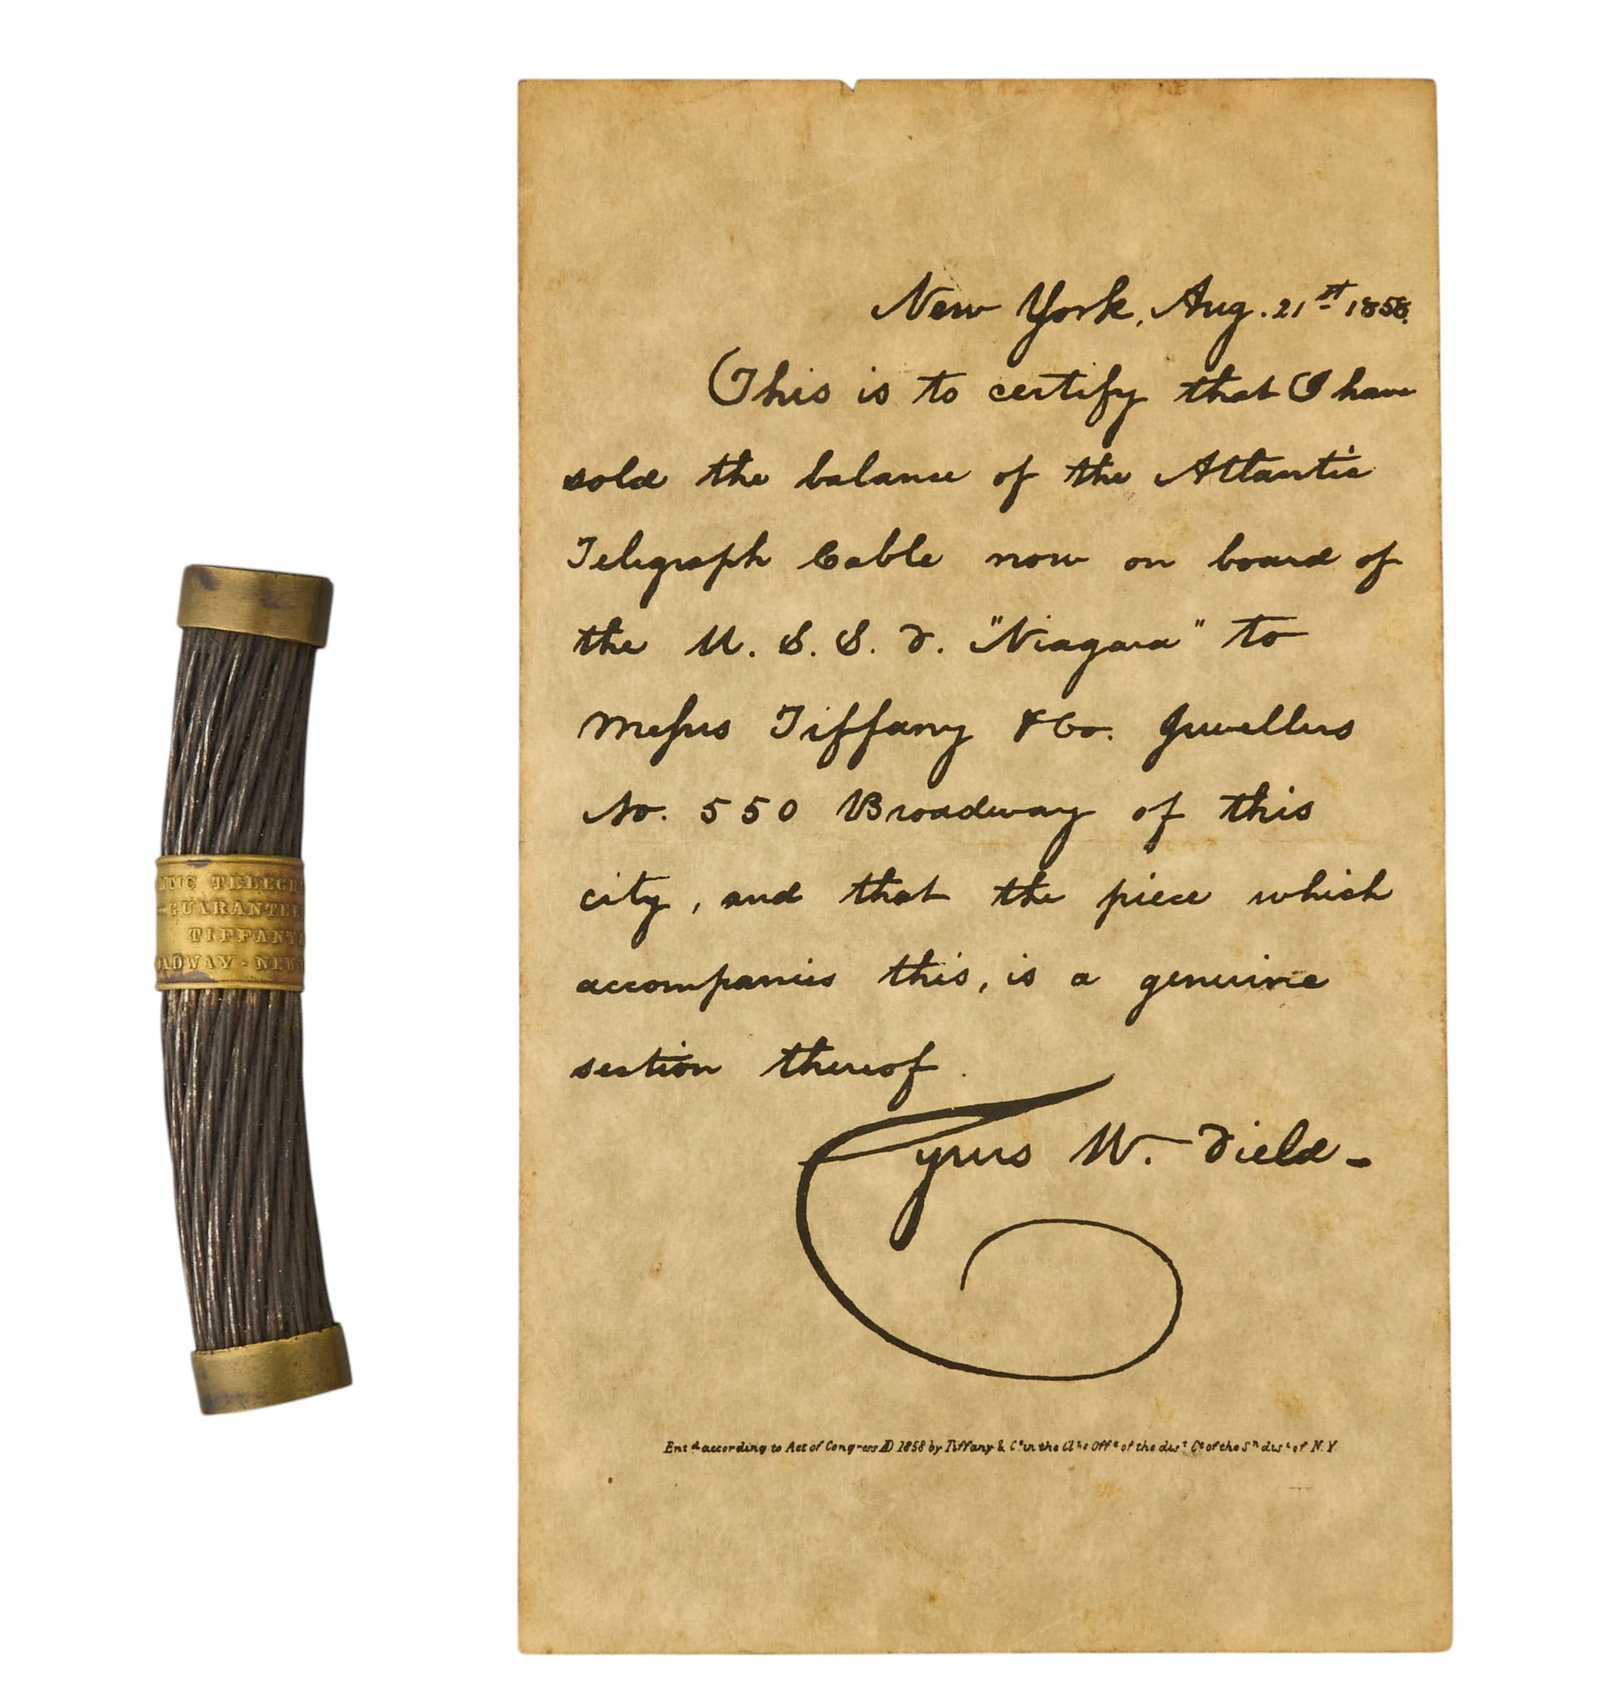 NTIC TELEGR
GUARANTEE
TIFFANY
OADWAY - NEW
New York, Aug. 21st 1858.
This is to certify that I have
sold the balance of the Atlantic
Telegraph Cable now on board of
the U. S. S. F. "Niagara" to
Messrs Tiffany & Co. Jewellers
No. 550 Broadway of this
city, and that the piece which
accompanies this, is a genuine
section thereof.
Cyrus W. Field -
Entd according to Act of Congress AD 1858 by Tiffany & Co in the Clks Offe of the dist Ct of the Sn dist of N.Y.